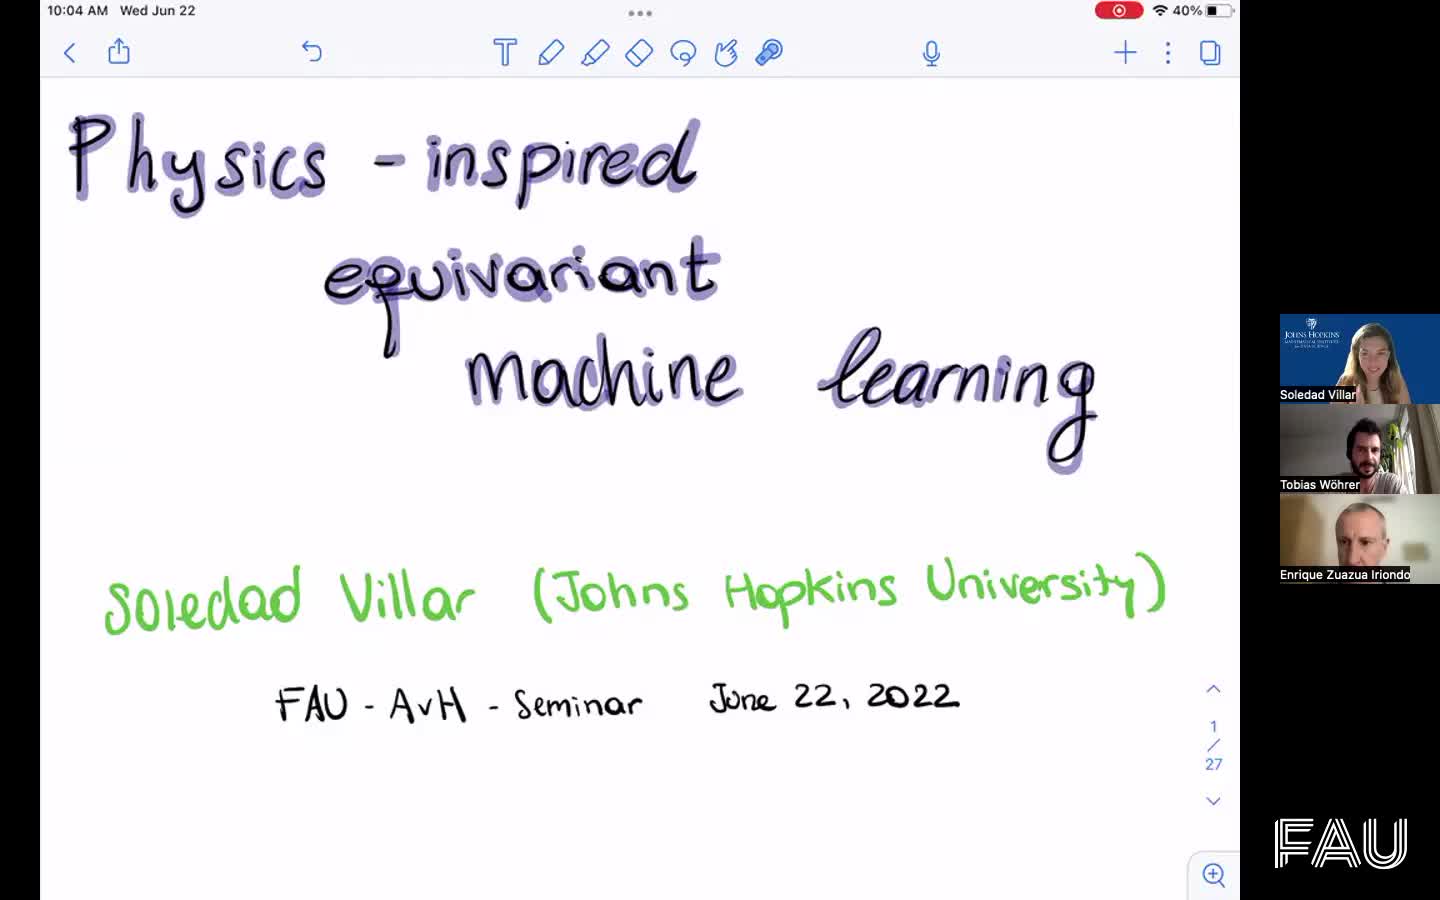 10:04 AM Wed Jun 22
40%
Physics - inspired
equivariant
machine learning
Soledad Villar (Johns Hopkins University)
FAU - AvH - Seminar June 22, 2022
1
/
27
JOHNS HOPKINS
Soledad Villar
Tobias Wöhrer
Enrique Zuazua Iriondo
FAU